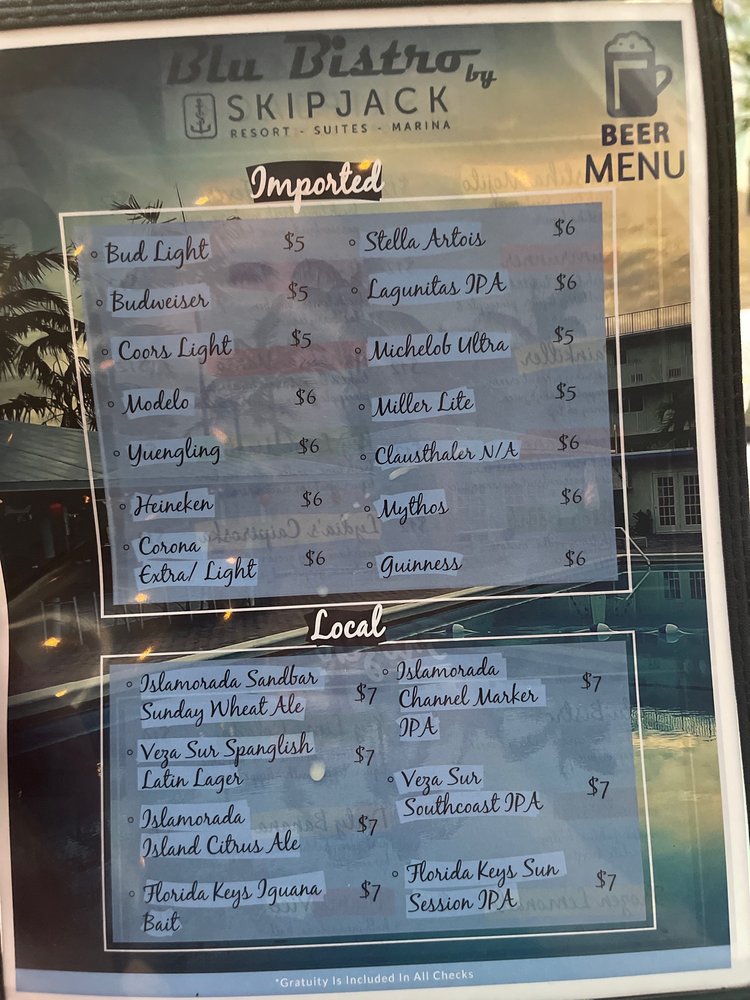 Blu Bistro by
SKIPJACK
RESORT - SUITES - MARINA
BEER
MENU
Imported
Bud Light $5
Budweiser $5
Coors Light $5
Modelo $6
Yuengling $6
Heineken $6
Corona
Extra/ Light $6
Stella Artois $6
Lagunitas IPA $6
Michelob Ultra $5
Miller Lite $5
Clausthaler N/A $6
Mythos $6
Guinness $6
Local
Islamorada Sandbar
Sunday Wheat Ale $7
Veza Sur Spanglish
Latin Lager $7
Islamorada
Island Citrus Ale $7
Florida Keys Iguana
Bait $7
Islamorada
Channel Marker
IPA $7
Veza Sur
Southcoast IPA $7
Florida Keys Sun
Session IPA $7
*Gratuity Is Included In All Checks